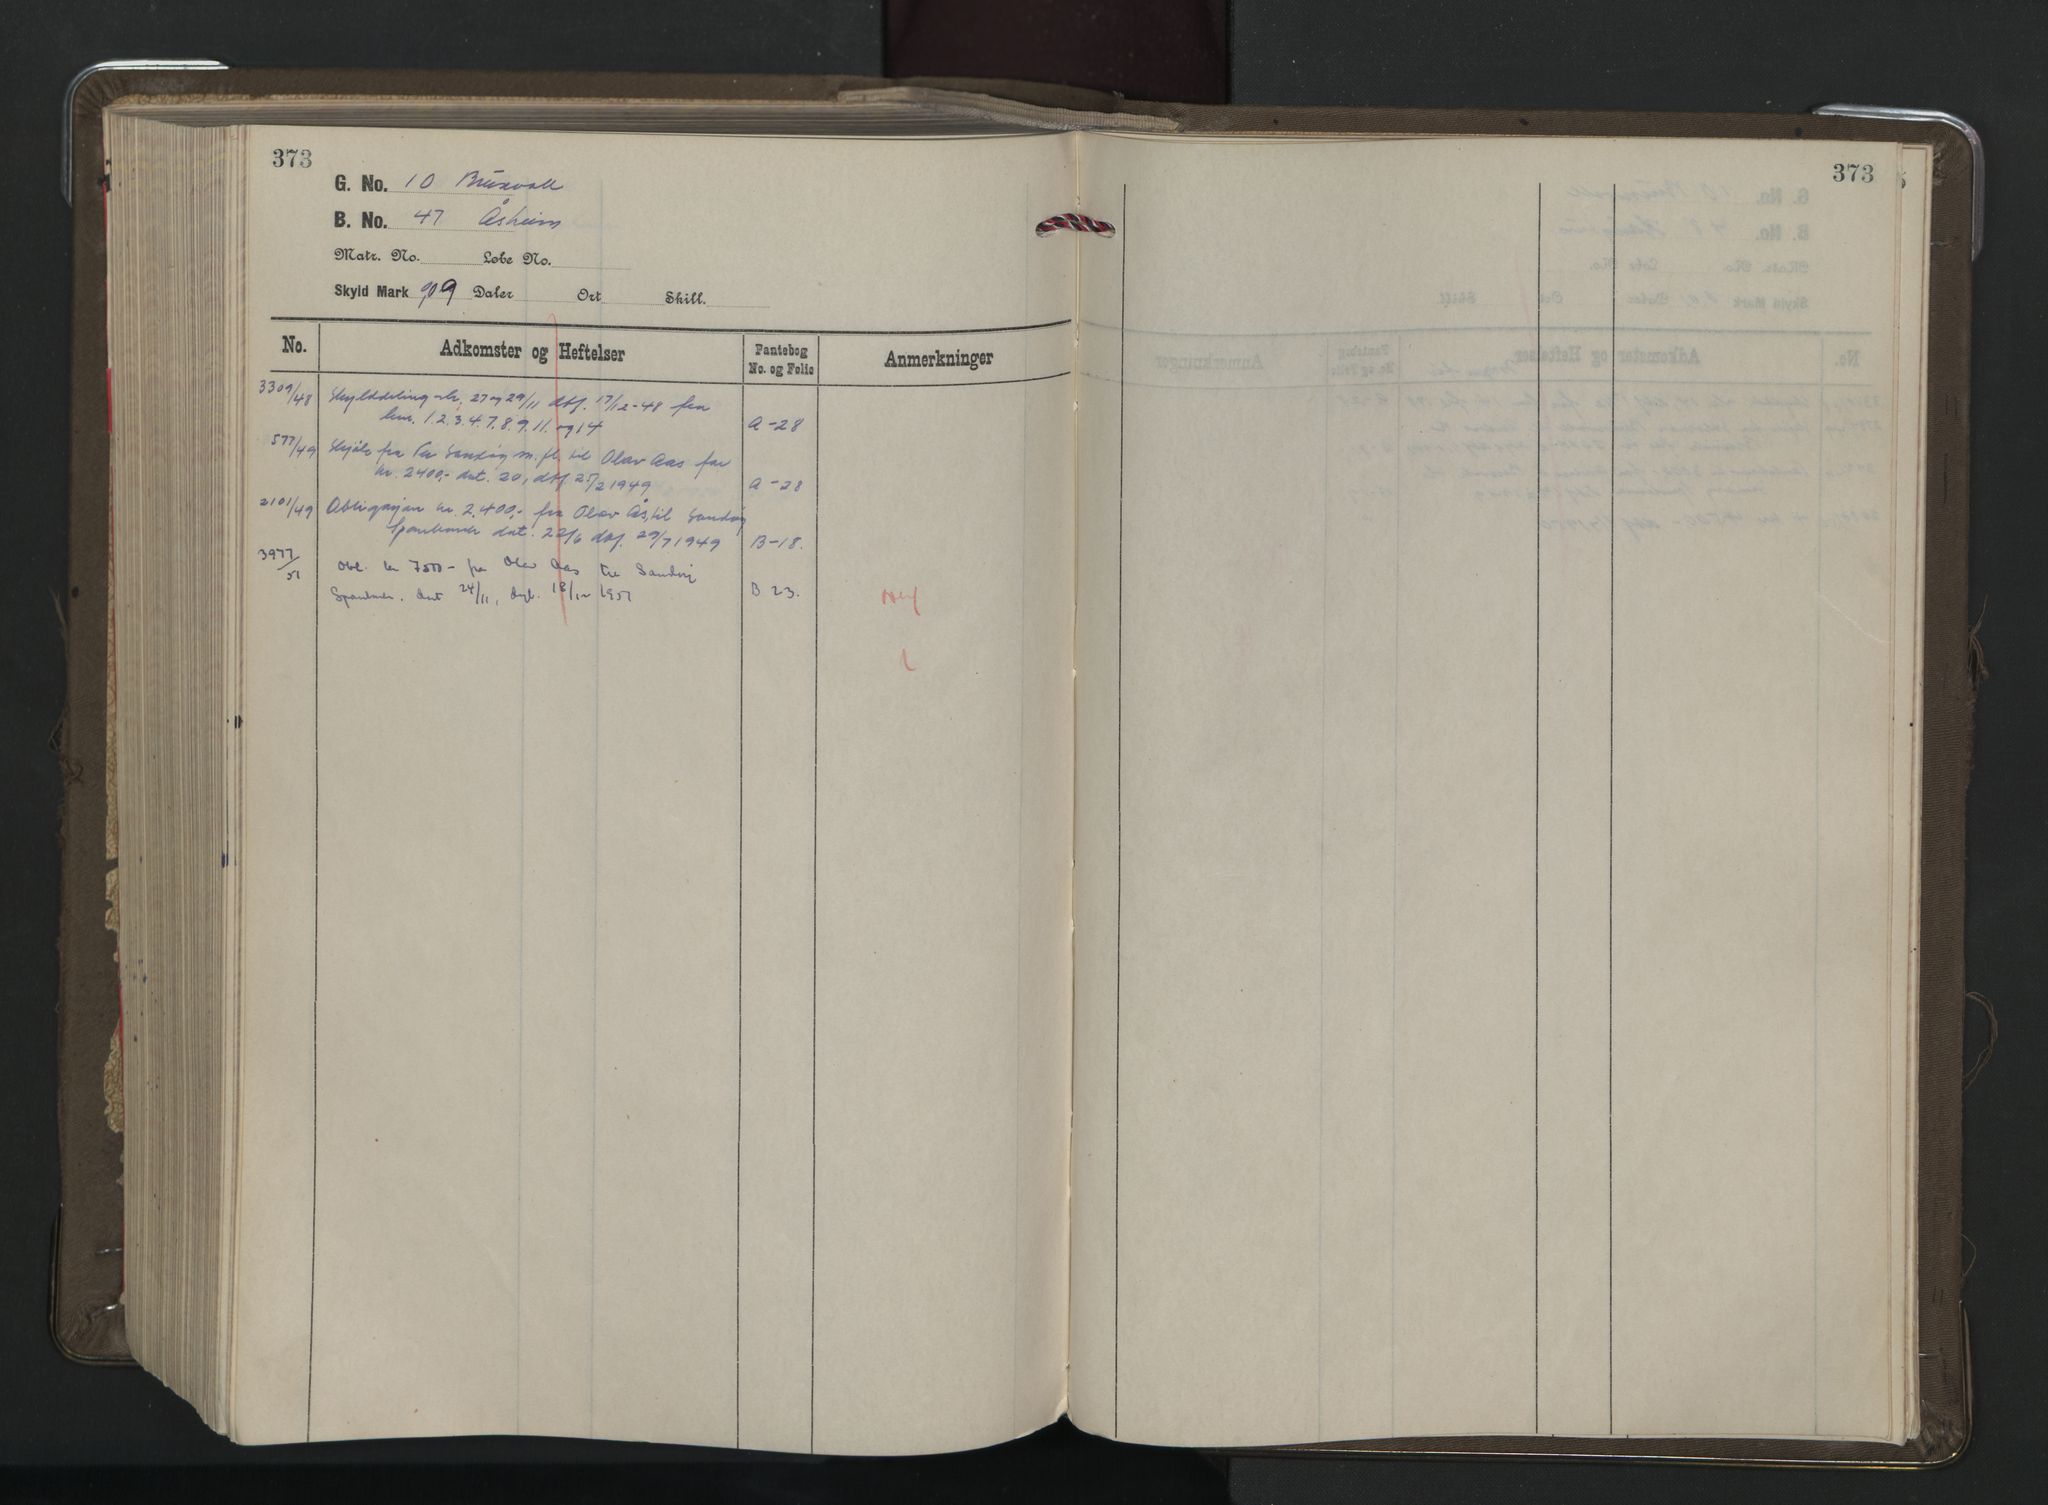 373
G. No. 10 Bruvoll
B. No. 47 Åsheim
Matr. No. Løbe No.
Skyld Mark 0,09 Daler Ort Skill.
No. Adkomster og Heftelser Pantebog No. og Folio Anmerkninger
3309/48 Skylddeling 27 og 29/11 dbf. 17/12-48 fra
bnr. 1.2.3.4.7.8.9.11. og 14 A-28
577/49 Skjøte fra Per Sandvig m.fl. til Olav Aas for
kr. 2400,- dat. 20, dbf. 25/2 1949 A-28
2101/49 Obligasjon kr. 2.400,- fra Olav Ås til Sandvig
Sparebank dat. 22/6 dbf. 29/7 1949 B-18.
3977/51 Obl. kr 7500- fra Olav Aas til Sandvig
Sparebank. dat 24/11, dgb. 18/12 1951 B 23.
373